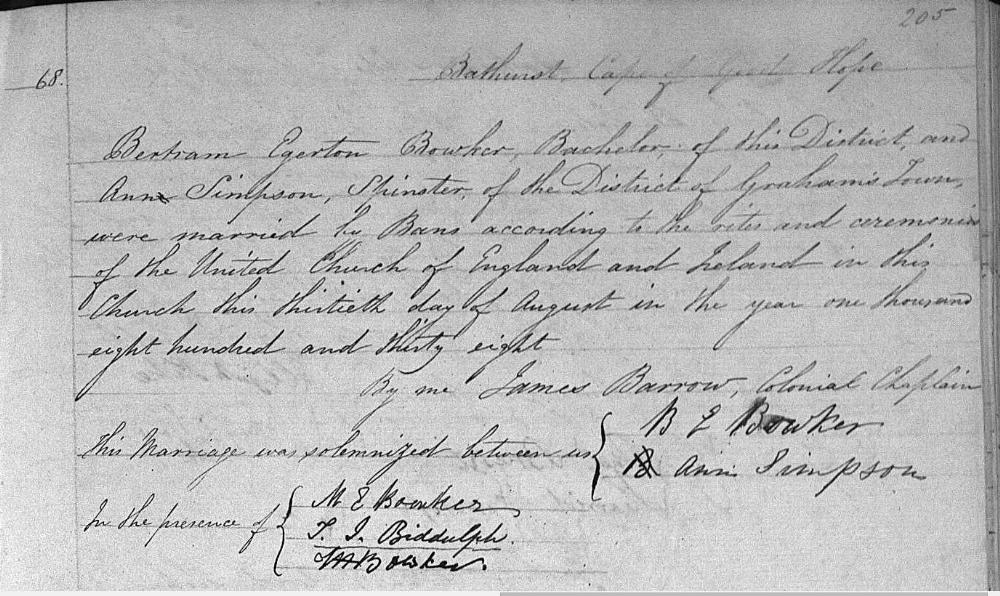 205
68.
Bathurst, Cape of Good Hope
Bertram Egerton Bowker, Bachelor, of this District, and
Ann Simpson, Spinster, of the District of Graham's Town,
were married by Bans according to the rites and ceremonies
of the United Church of England and Ireland in this
Church this thirtieth day of August in the year one thousand
eight hundred and thirty eight
By me James Barrow, Colonial Chaplain
This Marriage was solemnized between us { B E Bowker
Ann Simpson
In the presence of { M E Bowker
T. J. Biddulph.
Bowker.